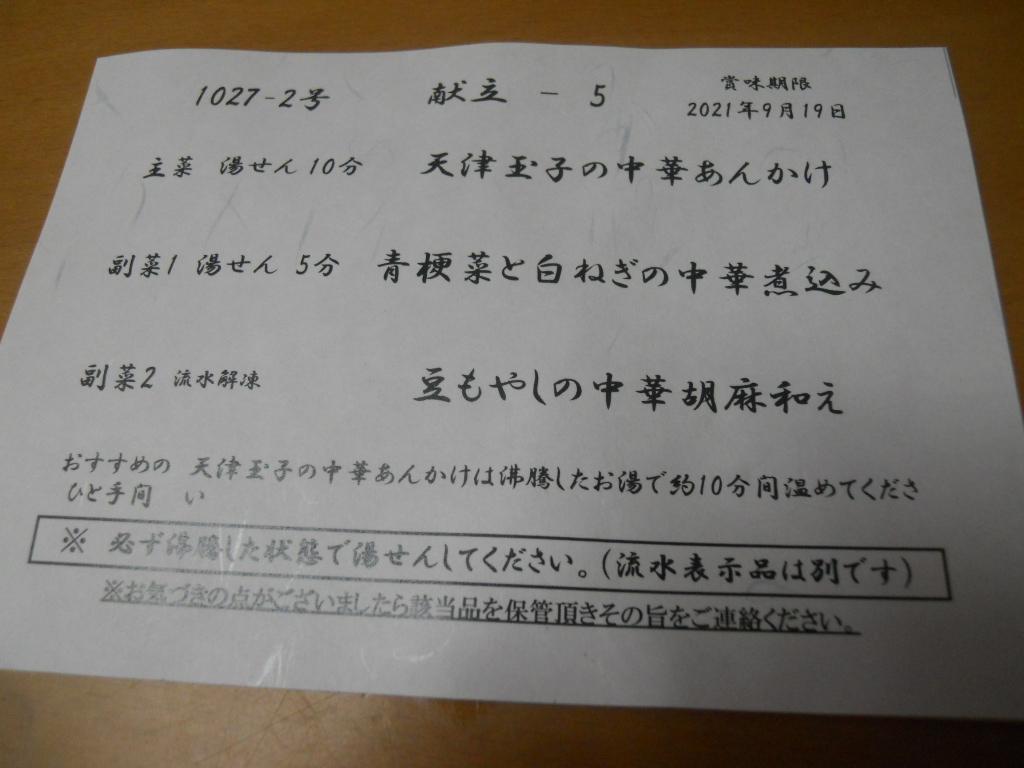 1027-2号 献立 - 5 賞味期限
2021年9月19日
主菜 湯せん 10分 天津玉子の中華あんかけ
副菜1 湯せん 5分 青梗菜と白ねぎの中華煮込み
副菜2 流水解凍 豆もやしの中華胡麻和え
おすすめの 天津玉子の中華あんかけは沸騰したお湯で約10分間温めてくださ
ひと手間 い
※ 必ず沸騰した状態で湯せんしてください。(流水表示品は別です)
※お気づきの点がございましたら該当品を保管頂きその旨をご連絡ください。